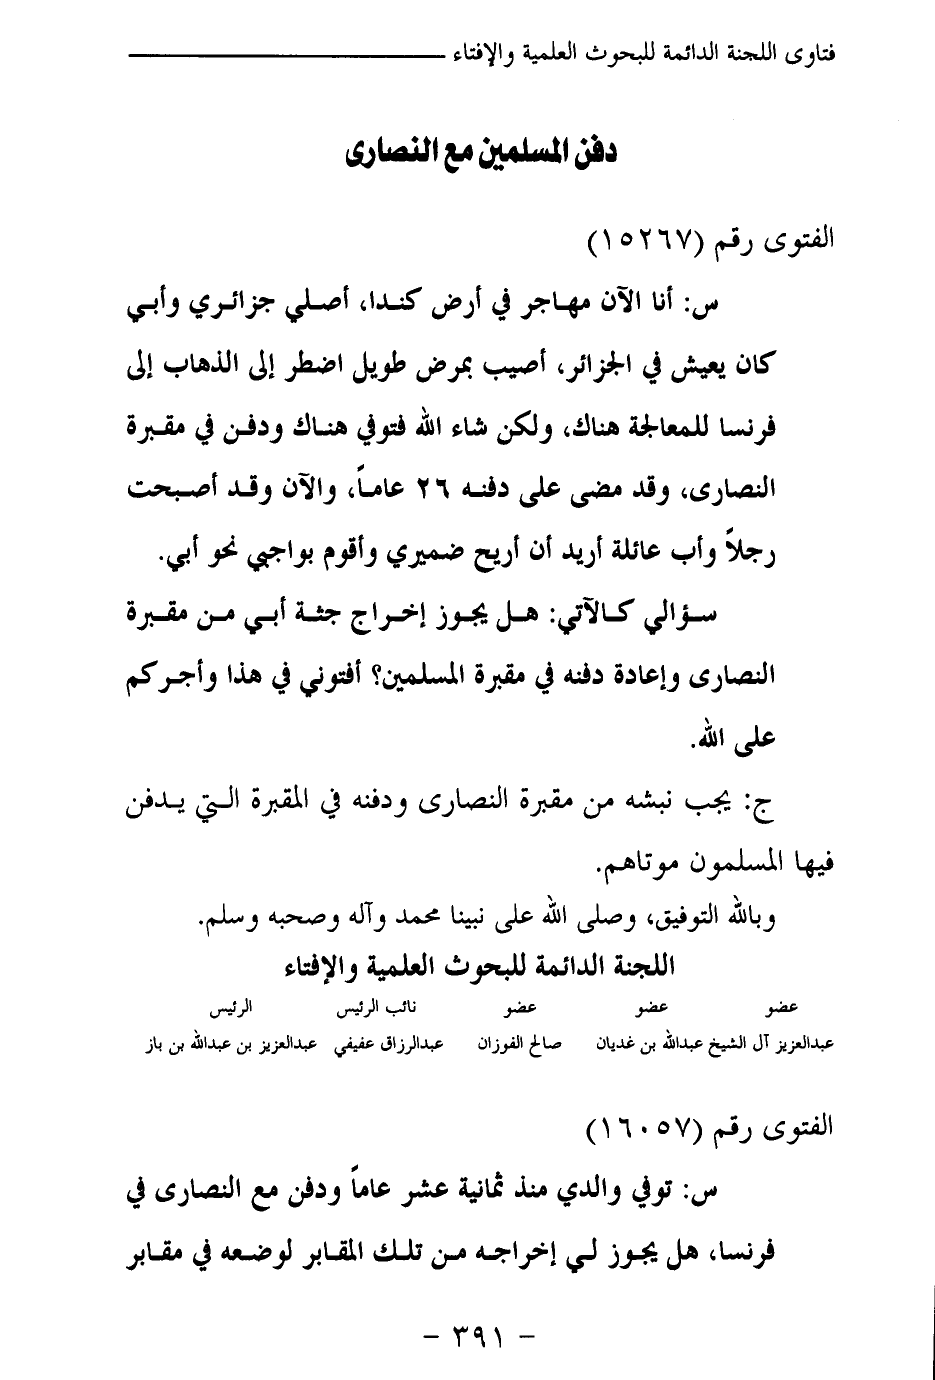 فتاوى اللجنة الدائمة للبحوث العلمية والإفتاء
دفن المسلمين مع النصارى
الفتوى رقم (١٥٢٦٧)
س: أنا الآن مهاجر في أرض كندا، أصلي جزائري وأبي
كان يعيش في الجزائر، أصيب بمرض طويل اضطر إلى الذهاب إلى
فرنسا للمعالجة هناك، ولكن شاء الله فتوفي هناك ودفن في مقبرة
النصارى، وقد مضى على دفنه ٢٦ عاماً، والآن وقد أصبحت
رجلاً وأب عائلة أريد أن أريح ضميري وأقوم بواجبي نحو أبي.
سؤالي كالآتي: هل يجوز إخراج جثة أبي من مقبرة
النصارى وإعادة دفنه في مقبرة المسلمين؟ أفتوني في هذا وأجركم
على الله.
ج: يجب نبشه من مقبرة النصارى ودفنه في المقبرة التي يدفن
فيها المسلمون موتاهم.
وبالله التوفيق، وصلى الله على نبينا محمد وآله وصحبه وسلم.
اللجنة الدائمة للبحوث العلمية والإفتاء
عضو عضو عضو نائب الرئيس الرئيس
عبدالعزيز آل الشيخ عبدالله بن غديان صالح الفوزان عبدالرزاق عفيفي عبدالعزيز بن عبدالله بن باز
الفتوى رقم (١٦٠٥٧)
س: توفي والدي منذ ثمانية عشر عاماً ودفن مع النصارى في
فرنسا، هل يجوز لي إخراجه من تلك المقابر لوضعه في مقابر
- ٣٩١ -